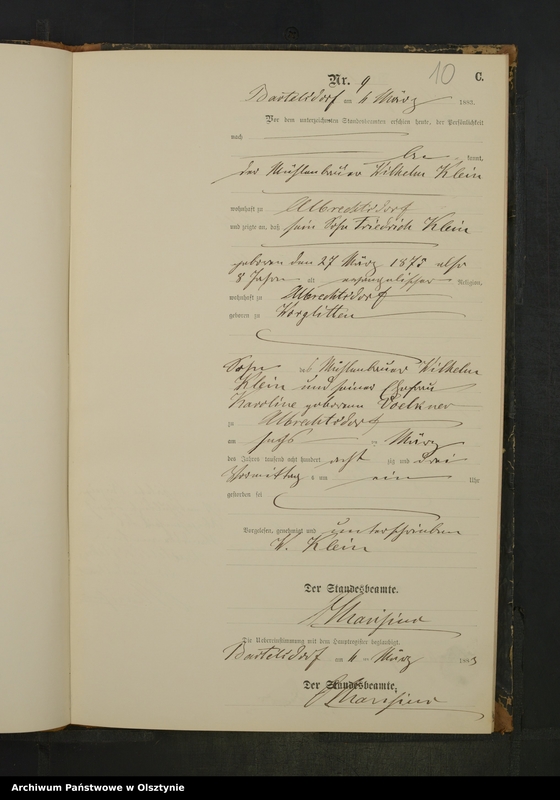 10 C.
Nr. 9
Bartelsdorf am 6 März 1883.
Vor dem unterzeichneten Standesbeamten erschien heute, der Persönlichkeit
nach
kannt,
der Mühlenbauer Wilhelm Klein
wohnhaft zu Albrechtsdorf
und zeigte an, daß sein Sohn Friedrich Klein
geboren den 27 März 1875 also
8 Jahre alt evangelischer Religion,
wohnhaft zu Albrechtsdorf
geboren zu Worglitten
Sohn des Mühlenbauer Wilhelm
Klein und seiner Ehefrau
Karoline geborenen
zu Albrechtsdorf
am sechs März
des Jahres tausend acht hundert acht zig und drei
Vormittag s um ein Uhr
gestorben sei
Vorgelesen, genehmigt und unterschrieben
W. Klein
Der Standesbeamte.
Die Uebereinstimmung mit dem Hauptregister beglaubigt.
Bartelsdorf am 6 März 1883
Der Standesbeamte.
Archiwum Państwowe w Olsztynie